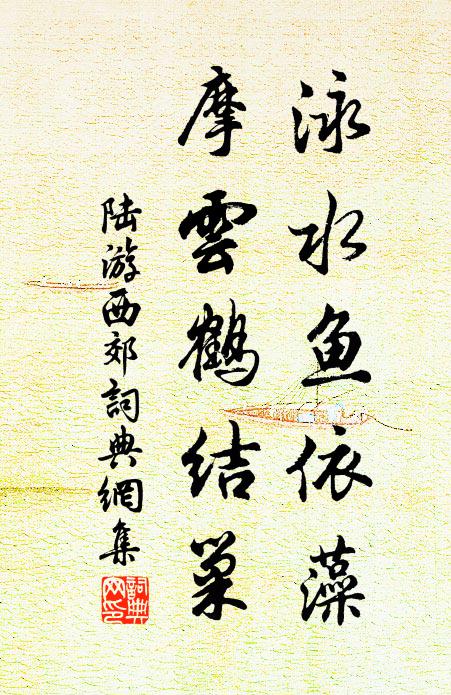 泳水鱼依藻
摩雲鶴结巢
陆游西郊詞典網集
詞典网印